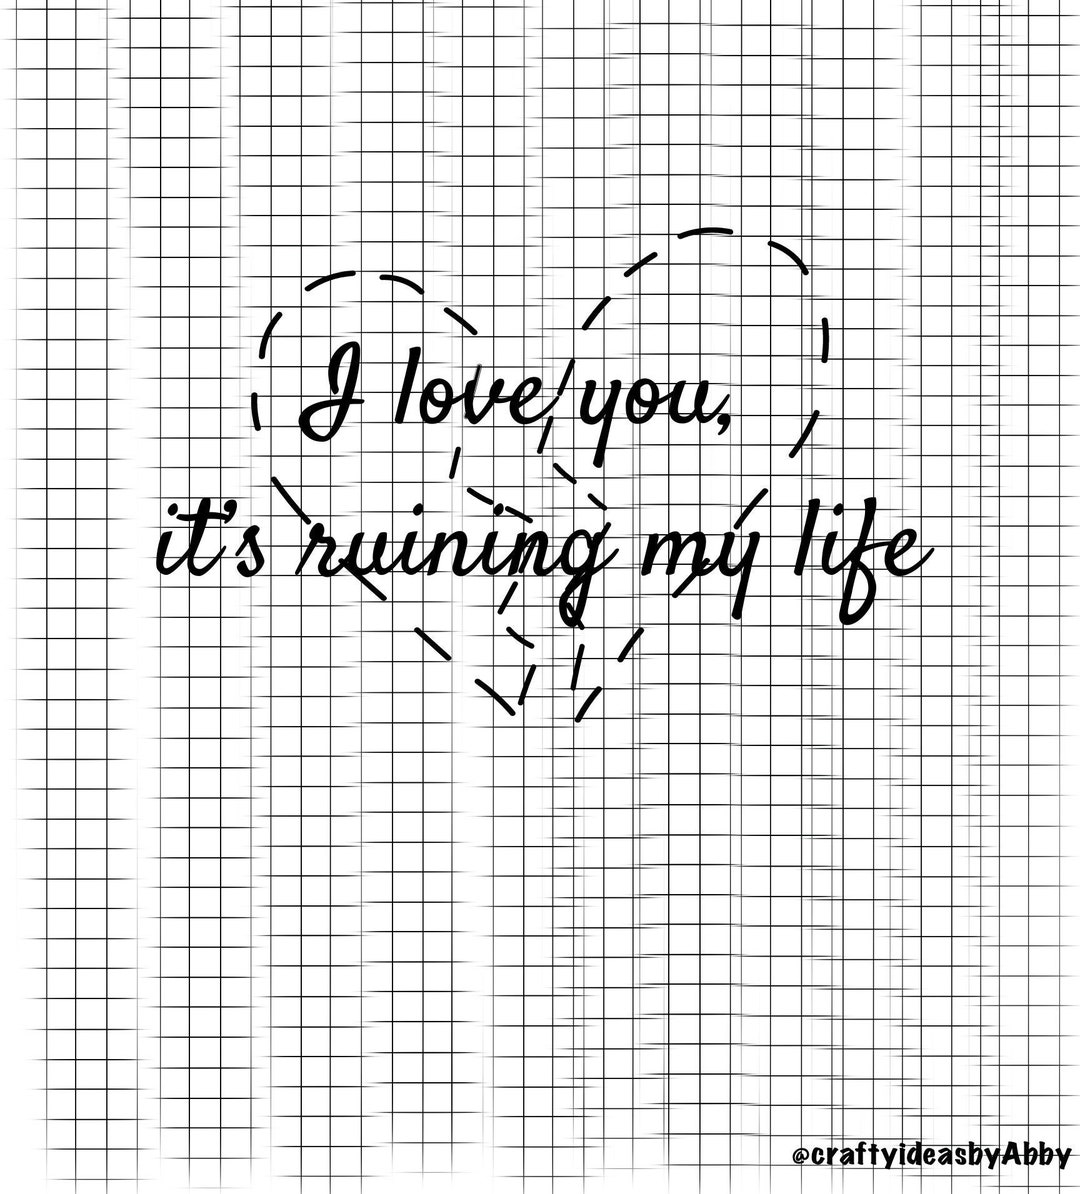 I love you,
it's ruining my life
@craftyideasbyAbby